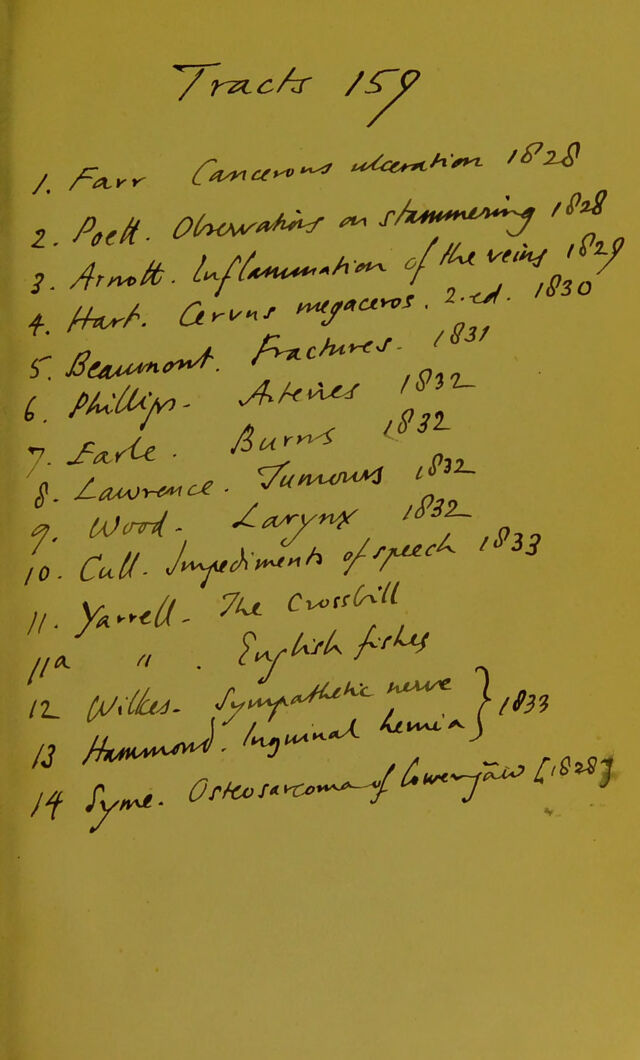 Tracts 159
1. Farr Cancerous ulceration 1828
2. Poett. Observations on stammering 1828
3. Arnott. Inflammation of the veins 1829
4. Hart. Cervus megaceros. 2. ed. 1830
5. Beaumont. Fractures. 1831
6. Phillips. Arteries 1832
7. Earle. Burns 1832
8. Lawrence. Tumours 1832
9. Wood. Larynx 1832
10. Cull. Impediments of speech 1833
11. Yarrell. The Crossbill
11a " . English fishes
12 Wilkes. Sympathetic nerve
13 Hammond. Inguinal hernia } 1833
14 Syme. Osteosarcoma of lower jaw [1828]